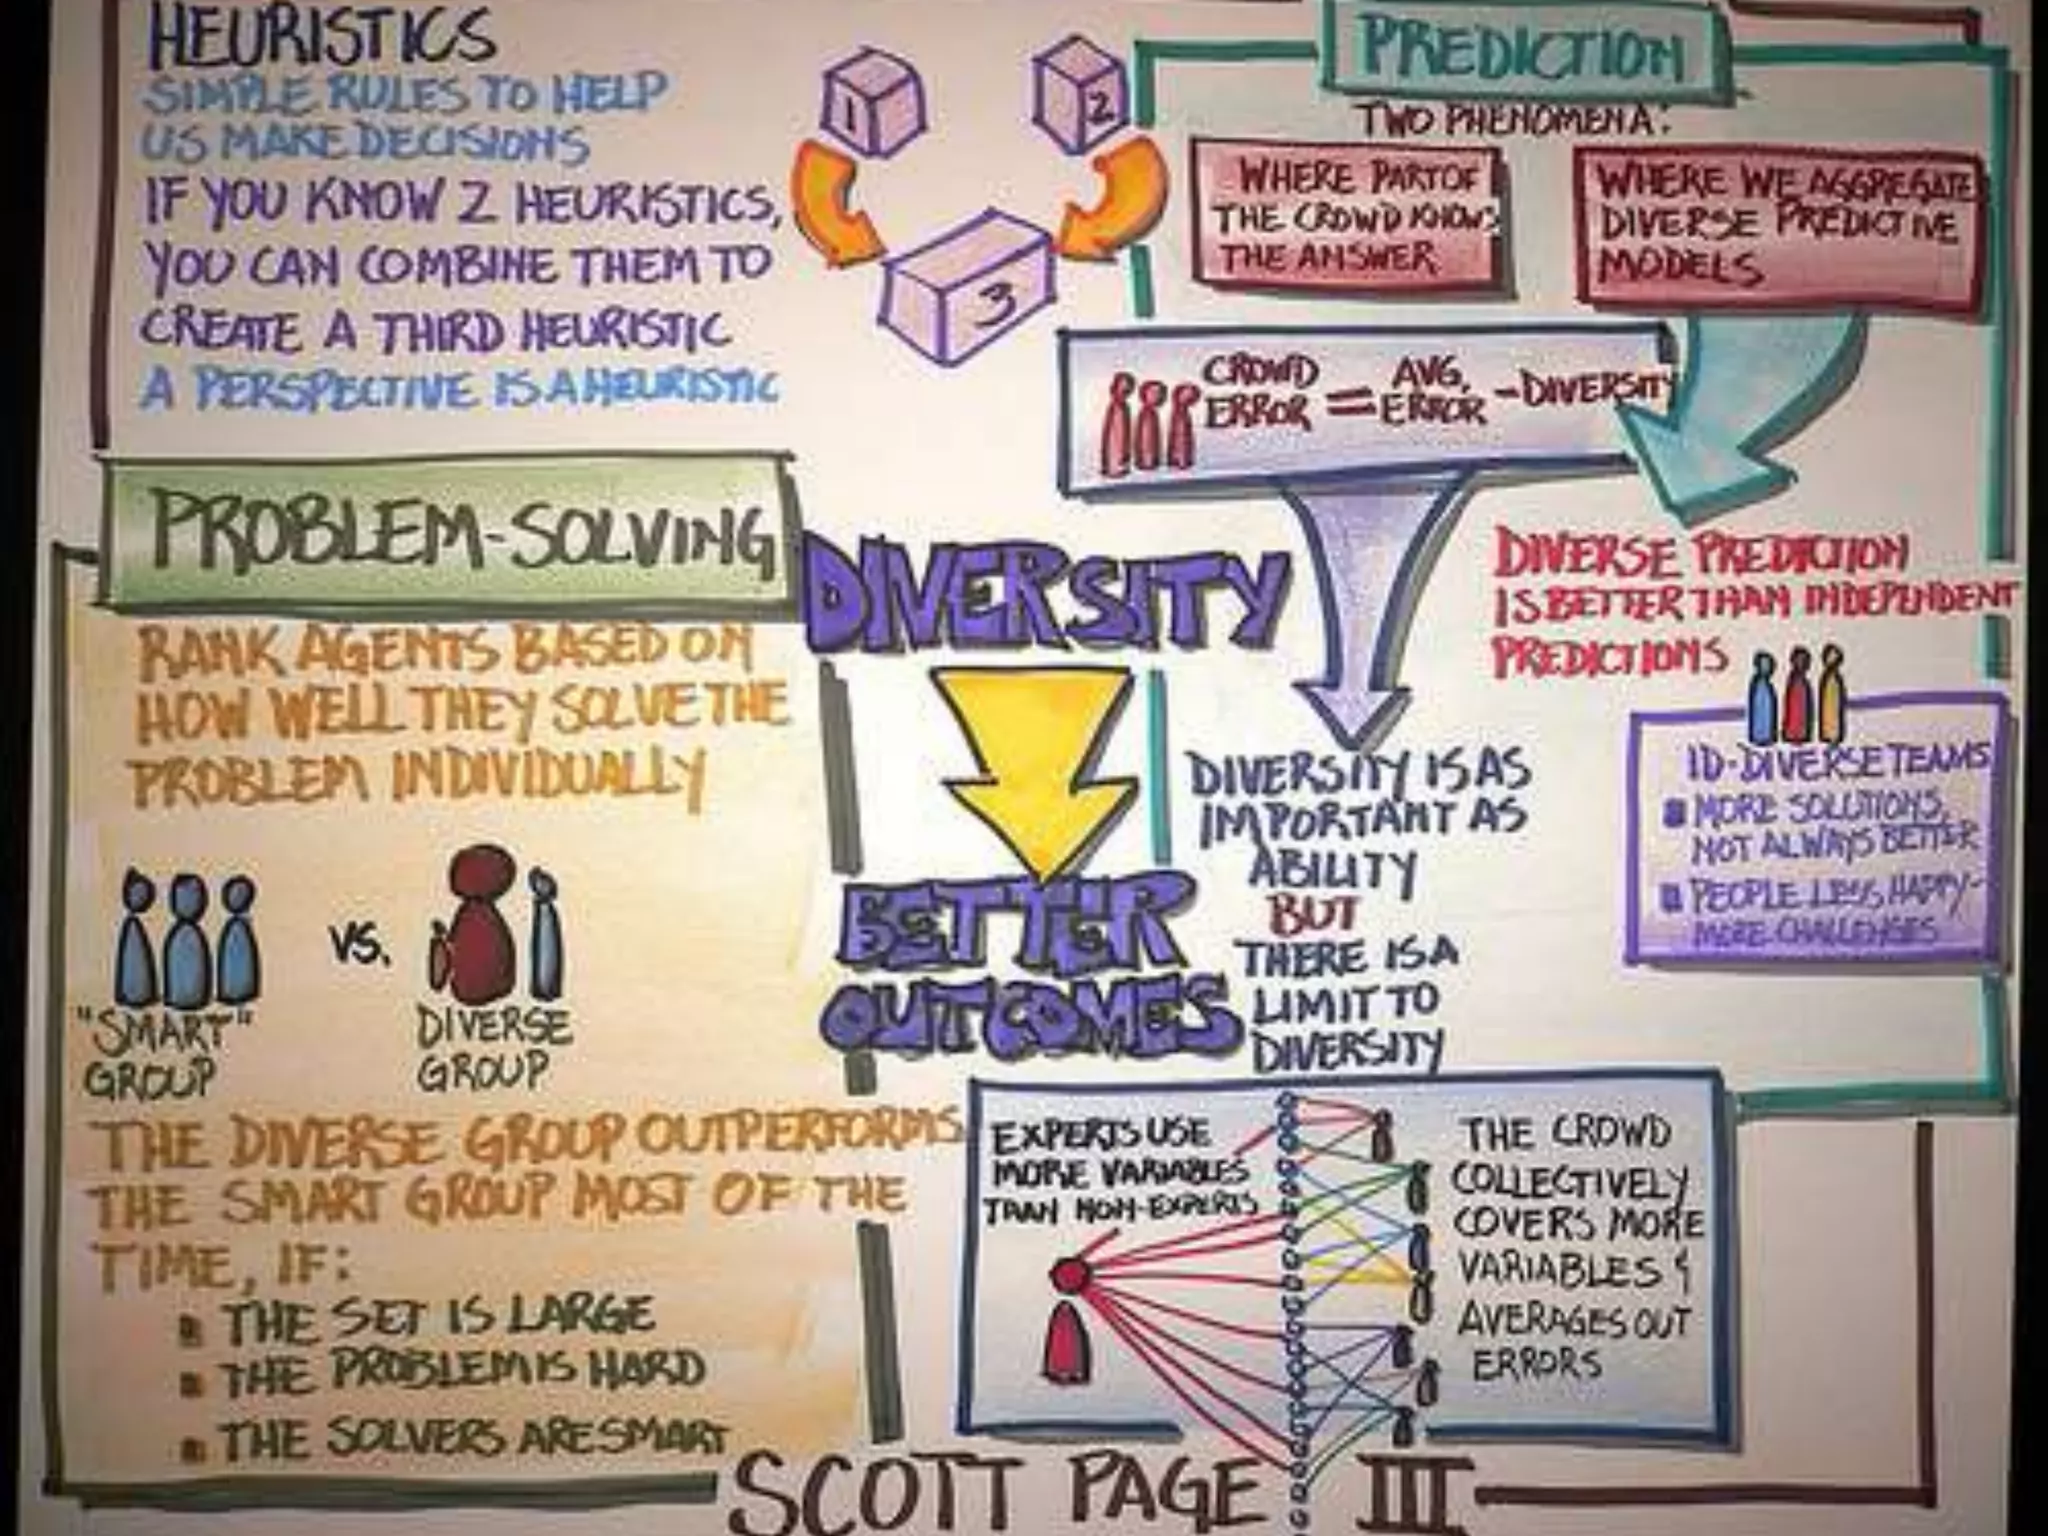 HEURISTICS
SIMPLE RULES TO HELP
US MAKE DECISIONS
IF YOU KNOW 2 HEURISTICS,
YOU CAN COMBINE THEM TO
CREATE A THIRD HEURISTIC
A PERSPECTIVE IS A HEURISTIC
1
2
3
PREDICTION
TWO PHENOMENA:
WHERE PART OF
THE CROWD KNOWS
THE ANSWER
WHERE WE AGGREGATE
DIVERSE PREDICTIVE
MODELS
CROWD
ERROR
=
AVG.
ERROR
-DIVERSITY
DIVERSE PREDICTION
IS BETTER THAN INDEPENDENT
PREDICTIONS
ID-DIVERSE TEAMS
MORE SOLUTIONS,
NOT ALWAYS BETTER
PEOPLE LESS HAPPY-
MORE CHALLENGES
DIVERSITY IS AS
IMPORTANT AS
ABILITY
BUT
THERE IS A
LIMIT TO
DIVERSITY
DIVERSITY
BETTER
OUTCOMES
PROBLEM-SOLVING
RANK AGENTS BASED ON
HOW WELL THEY SOLVE THE
PROBLEM INDIVIDUALLY
"SMART"
GROUP
VS.
DIVERSE
GROUP
THE DIVERSE GROUP OUTPERFORMS
THE SMART GROUP MOST OF THE
TIME, IF:
THE SET IS LARGE
THE PROBLEM IS HARD
THE SOLVERS ARE SMART
EXPERTS USE
MORE VARIABLES
THAN NON-EXPERTS
THE CROWD
COLLECTIVELY
COVERS MORE
VARIABLES &
AVERAGES OUT
ERRORS
SCOTT PAGE III